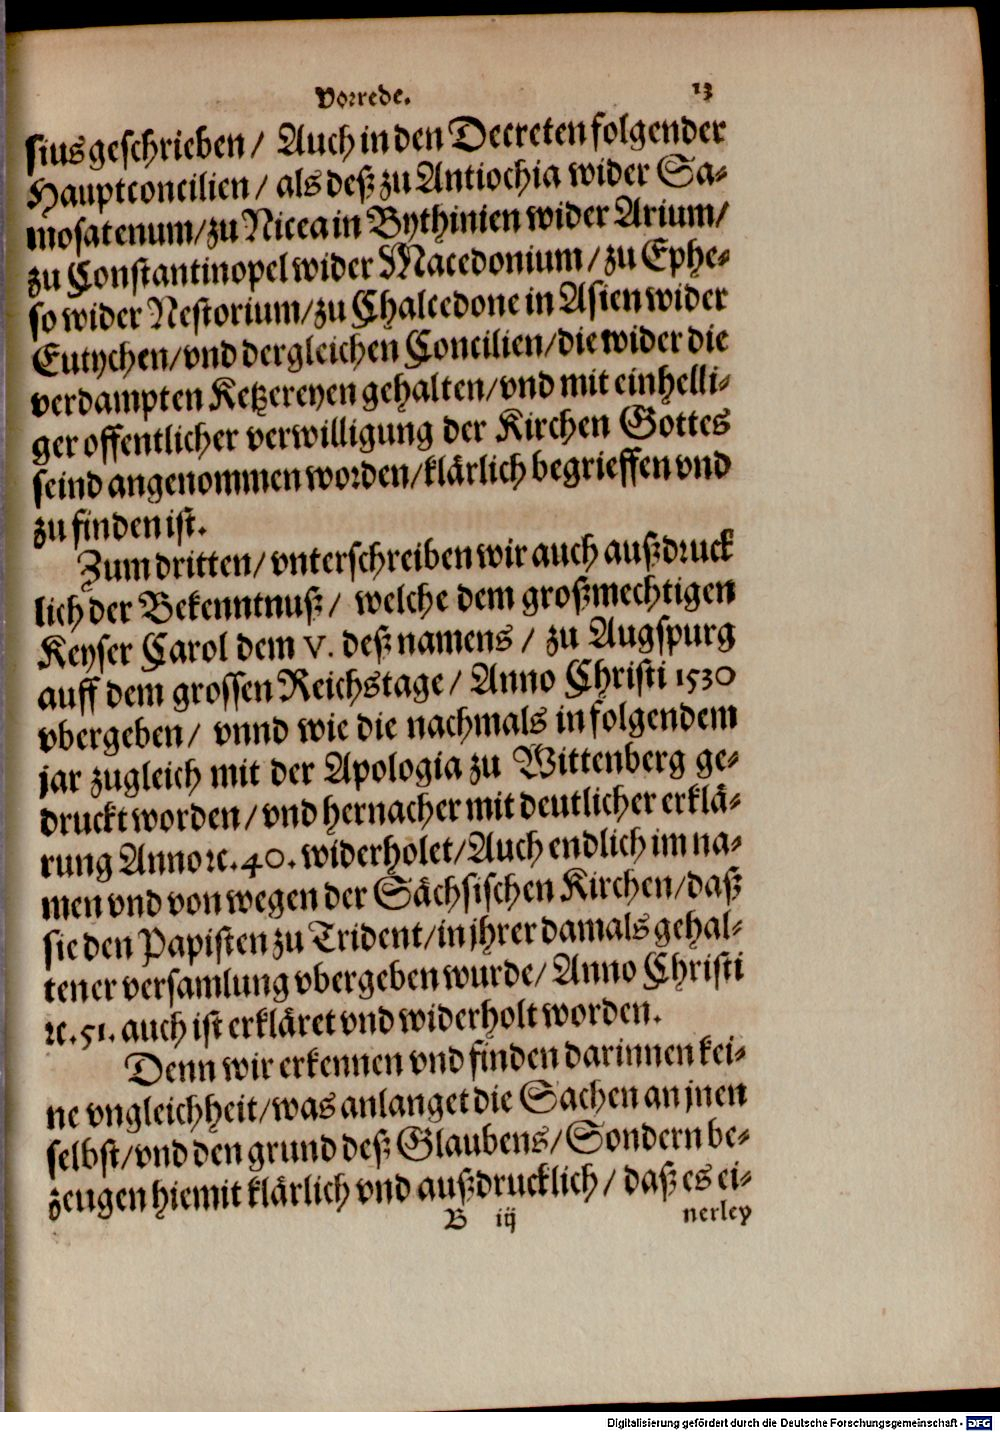 Vorrede. 13
sius geschrieben / Auch in den Decreten folgender
Hauptconcilien / als deß zu Antiochia wider Sa-
mosatenum/zu Nicea in Bythinien wider Arium/
zu Constantinopel wider Macedonium /zu Ephe-
so wider Nestorium/zu Chalcedone in Asien wider
Eutychen/vnd dergleichen Concilien/die wider die
verdampten Ketzereyen gehalten/vnd mit einhelli-
ger offentlicher verwilligung der Kirchen Gottes
seind angenommen worden/klärlich begrieffen vnd
zu finden ist.
Zum dritten/ vnterschreiben wir auch außdruck
lich der Bekenntnuß / welche dem großmechtigen
Keyser Carol dem V. deß namens / zu Augspurg
auff dem grossen Reichstage / Anno Christi 1530
vbergeben/ vnnd wie die nachmals in folgendem
jar zugleich mit der Apologia zu Wittenberg ge-
druckt worden /vnd hernacher mit deutlicher erklä-
rung Anno ꝛc. 40. widerholet/Auch endlich im na-
men vnd von wegen der Sächsischen Kirchen/daß
sie den Papisten zu Trident/in jhrer damals gehal-
tener versamlung vbergeben wurde/ Anno Christi
ꝛc. 51. auch ist erkläret vnd widerholt worden.
Denn wir erkennen vnd finden darinnen kei-
ne vngleichheit/was anlanget die Sachen an jnen
selbst/vnd den grund deß Glaubens/Sondern be-
zeugen hiemit klärlich vnd außdrucklich / daß es ei-
B iij nerley
Digitalisierung gefördert durch die Deutsche Forschungsgemeinschaft - DFG